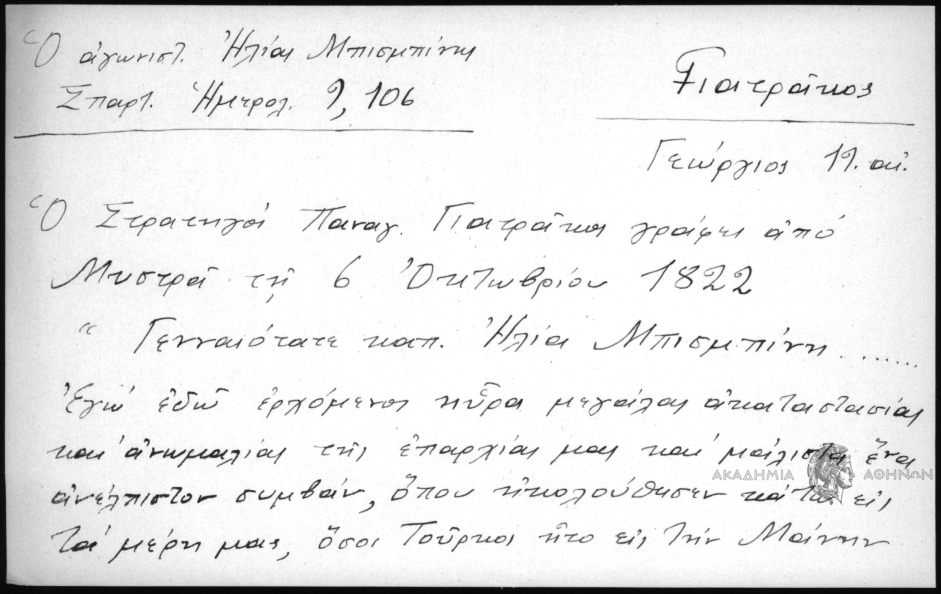 Ὁ ἀγωνιστ. Ἠλίας Μπισμπίνης
Σπαρτ. Ἡμερολ. 9, 106
Γιατρᾶκος
Γεώργιος 19. αἰ.
Ὁ Στρατηγὸς Παναγ. Γιατρᾶκος γράφει ἀπό
Μυστρᾶ τῇ 6 Ὀκτωβρίου 1822
“ Γενναιότατε καπ. Ἠλία Μπισμπίνη .......
Ἐγώ ἐδῶ ἐρχόμενος ηὗρα μεγάλας ἀκαταστασίας
καί ἀνωμαλίας τῆς ἐπαρχίας μας καί μάλιστα ἕνα
ἀνέλπιστον συμβάν, ὅπου ἠκολούθησεν κάτω εἰς
τά μέρη μας, ὅσοι Τοῦρκοι ἦτο εἰς τήν Μάνην
ΑΚΑΔΗΜΙΑ ΑΘΗΝΩΝ